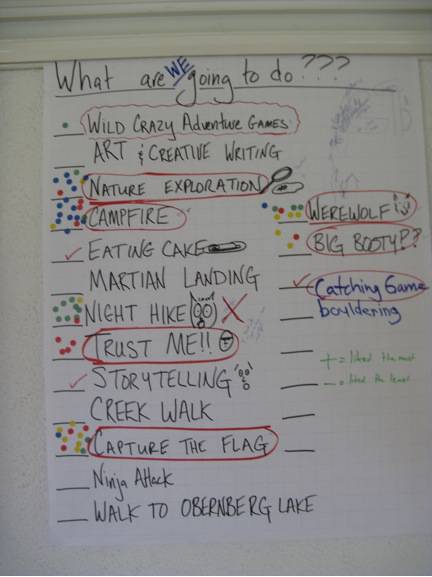 What are WE going to do???
WILD CRAZY Adventure GAMES
ART & CREATIVE WRITING
NATURE EXPLORATION
CAMPFIRE
EATING CAKE
MARTIAN LANDING
NIGHT HIKE
TRUST ME!!
STORYTELLING
CREEK WALK
CAPTURE THE FLAG
Ninja Attack
WALK TO OBERNBERG LAKE
WEREWOLF
BIG BOOTY??
Catching Game
bouldering
+ = liked the most
- = liked the least